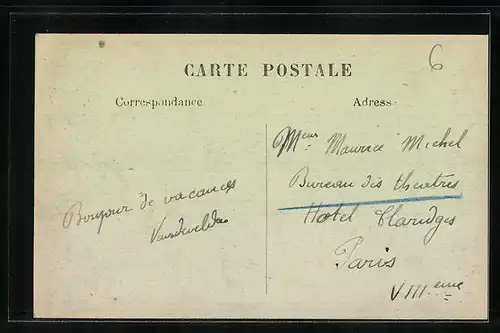 6
CARTE POSTALE
Correspondance
Adresse
Bonjour de vacances
Meur Maurice Michel
Bureau des theatres
Hotel Claridges
Paris
VIIIeme